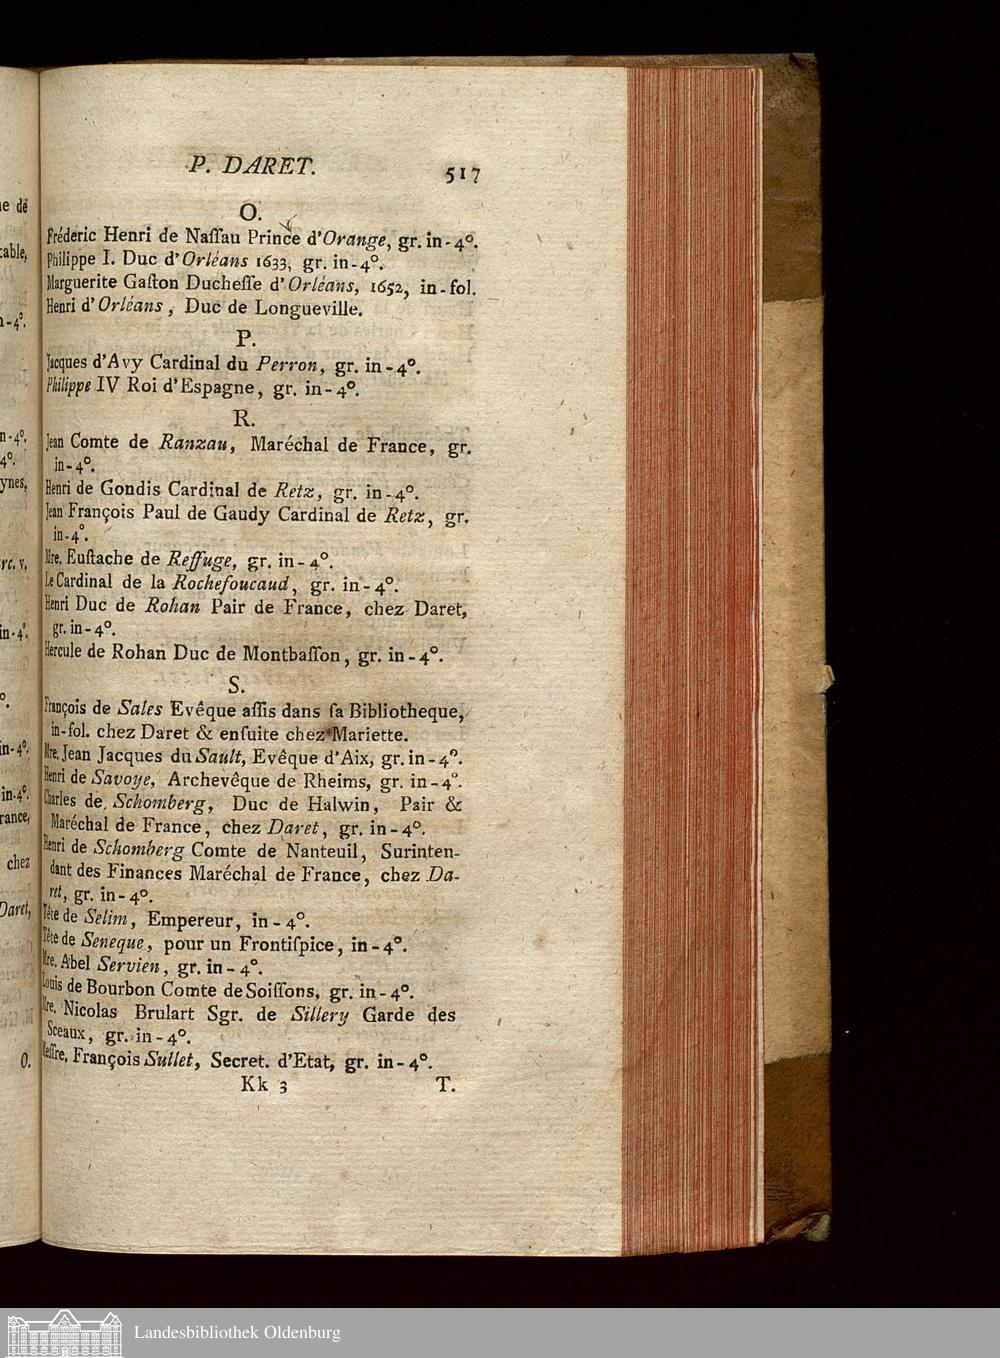 P. DARET.
517
O.
Fréderic Henri de Naſſau Prince d'Orange, gr. in-4°.
Philippe I. Duc d'Orléans 1633, gr. in-4°.
Marguerite Gaſton Ducheſſe d'Orléans, 1652, in-fol.
Henri d'Orléans, Duc de Longueville.
P.
Jacques d'Avy Cardinal du Perron, gr. in-4°.
Philippe IV Roi d'Espagne, gr. in-4°.
R.
Jean Comte de Ranzau, Maréchal de France, gr.
in-4°.
Henri de Gondis Cardinal de Retz, gr. in-4°.
Jean François Paul de Gaudy Cardinal de Retz, gr.
in-4°.
Mre. Euſtache de Reffuge, gr. in-4°.
Le Cardinal de la Rochefoucaud, gr. in-4°.
Henri Duc de Rohan Pair de France, chez Daret,
gr. in-4°.
Hercule de Rohan Duc de Montbaſſon, gr. in-4°.
S.
François de Sales Evêque aſſis dans ſa Bibliotheque,
in-fol. chez Daret & enſuite chez Mariette.
Mre. Jean Jacques du Sault, Evêque d'Aix, gr. in-4°.
Henri de Savoye, Archevêque de Rheims, gr. in-4°.
Charles de Schomberg, Duc de Halwin, Pair &
Maréchal de France, chez Daret, gr. in-4°.
Henri de Schomberg Comte de Nanteuil, Surinten-
dant des Finances Maréchal de France, chez Da-
ret, gr. in-4°.
Tête de Selim, Empereur, in-4°.
Tête de Seneque, pour un Frontiſpice, in-4°.
Mre. Abel Servien, gr. in-4°.
Louis de Bourbon Comte de Soiſſons, gr. in-4°.
Mre. Nicolas Brulart Sgr. de Sillery Garde des
Sceaux, gr. in-4°.
Meſſre. François Sullet, Secret. d'Etat, gr. in-4°.
Kk 3
T.
Landesbibliothek Oldenburg